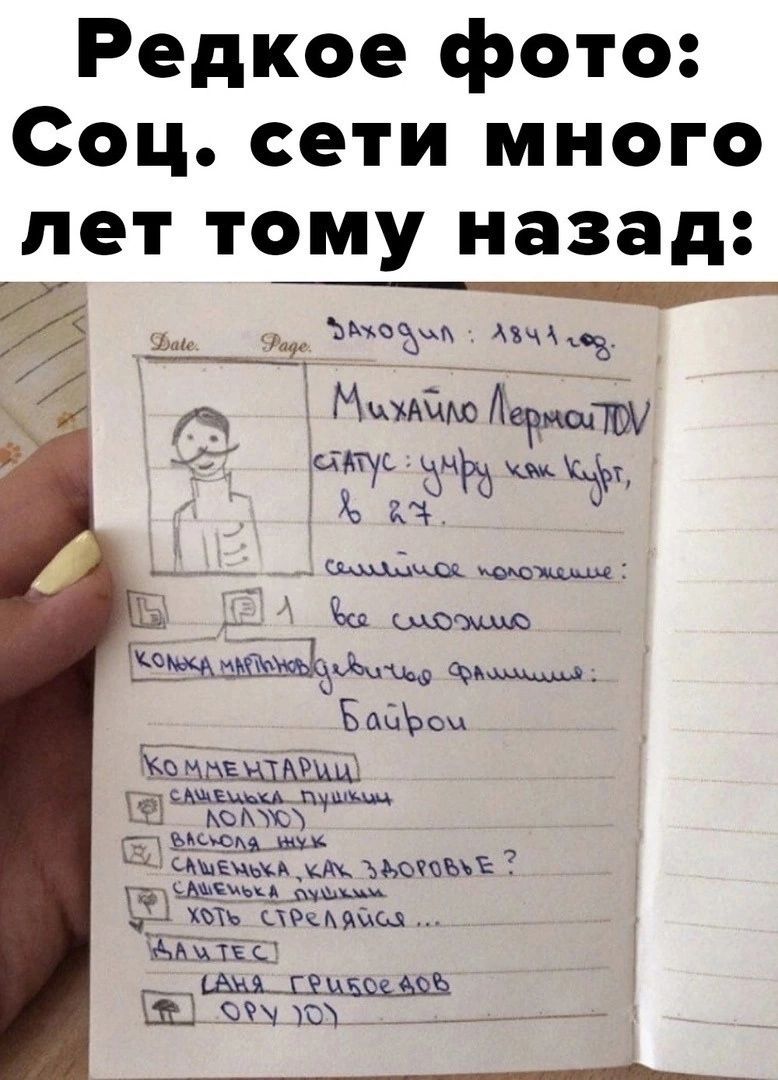 Редкое фото:
Соц. сети много
лет тому назад:
Date. Page.
Заходил : 1841 год.
Михайло ЛермоиTOV
статус : умру как Курт,
в 27.
семейное положение :
1 все сложно
КОЛЬКА МАРТЫНОВ
девичья фамилия :
Байрон
КОММЕНТАРИИ
САШЕНЬКА ПУШКИН
ЛОЛ))0)
ВАСЬОЛЯ ЖУК
САШЕНЬКА, КАК ЗДОРОВЬЕ ?
САШЕНЬКА ПУШКИН
ХОТЬ СТРЕЛЯЙСЯ ...
ДАНТЕС
САНЯ ГРИБОЕДОВ
ОРУ )0)